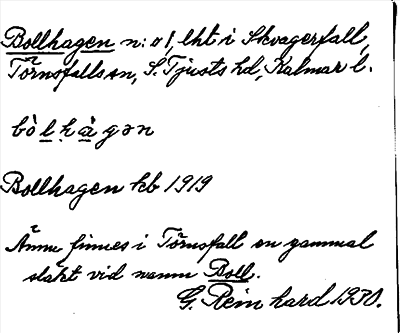 Bollhagen n:o 1, lht i Skvagerfall,
Törnsfalls sn, S. Tjusts hd, Kalmar l.
bò l hà gən
Bollhagen kb 1919
Ännu finnes i Törnsfall en gammal
släkt vid namn Boll.
G. Reinhard 1930.